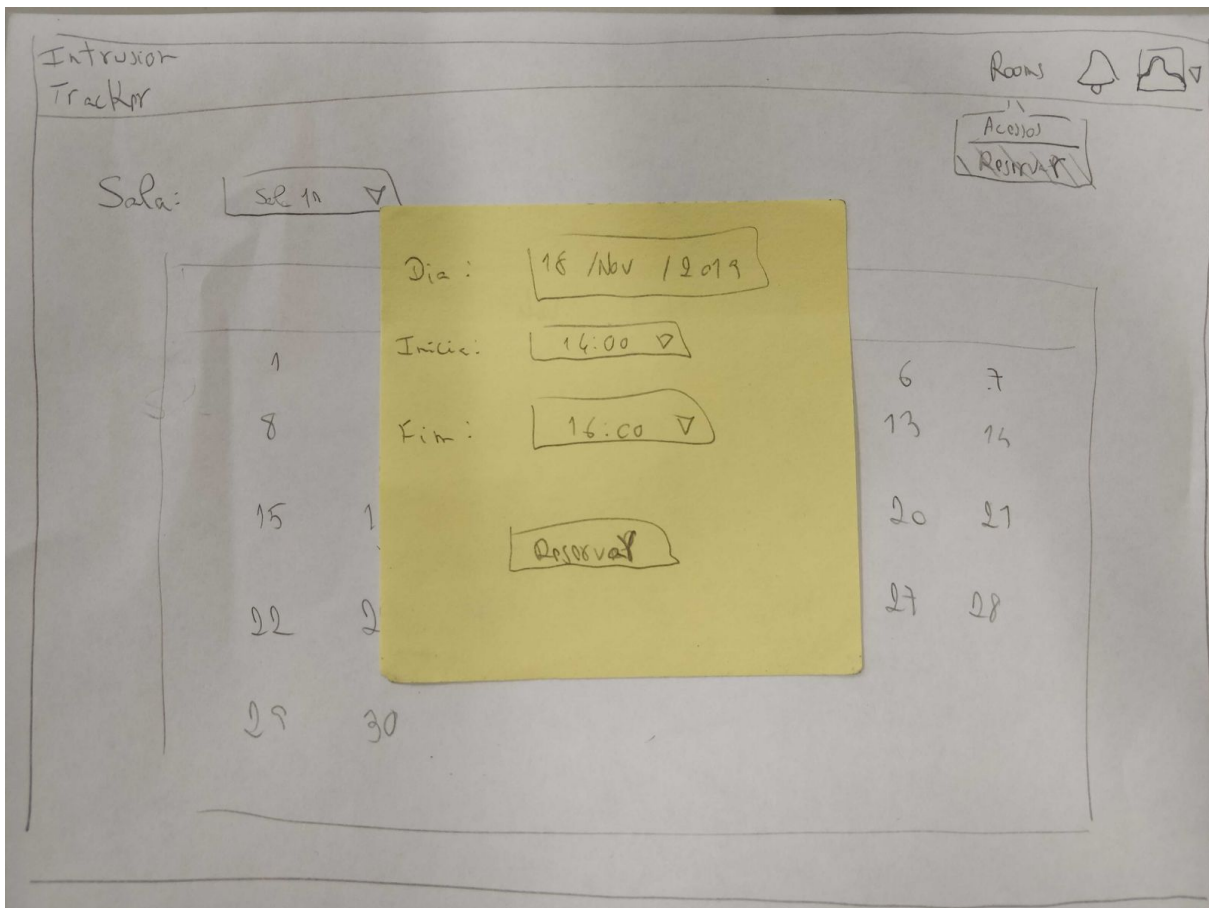 Intrusion
Tracker
Rooms
Acessos
Reservar
Sala:
Dia: 18 /Nov /2019
Inicio: 14:00
Fim: 16:00
Reservar
1 6 7
8 13 14
15 1 20 21
22 2 27 28
29 30